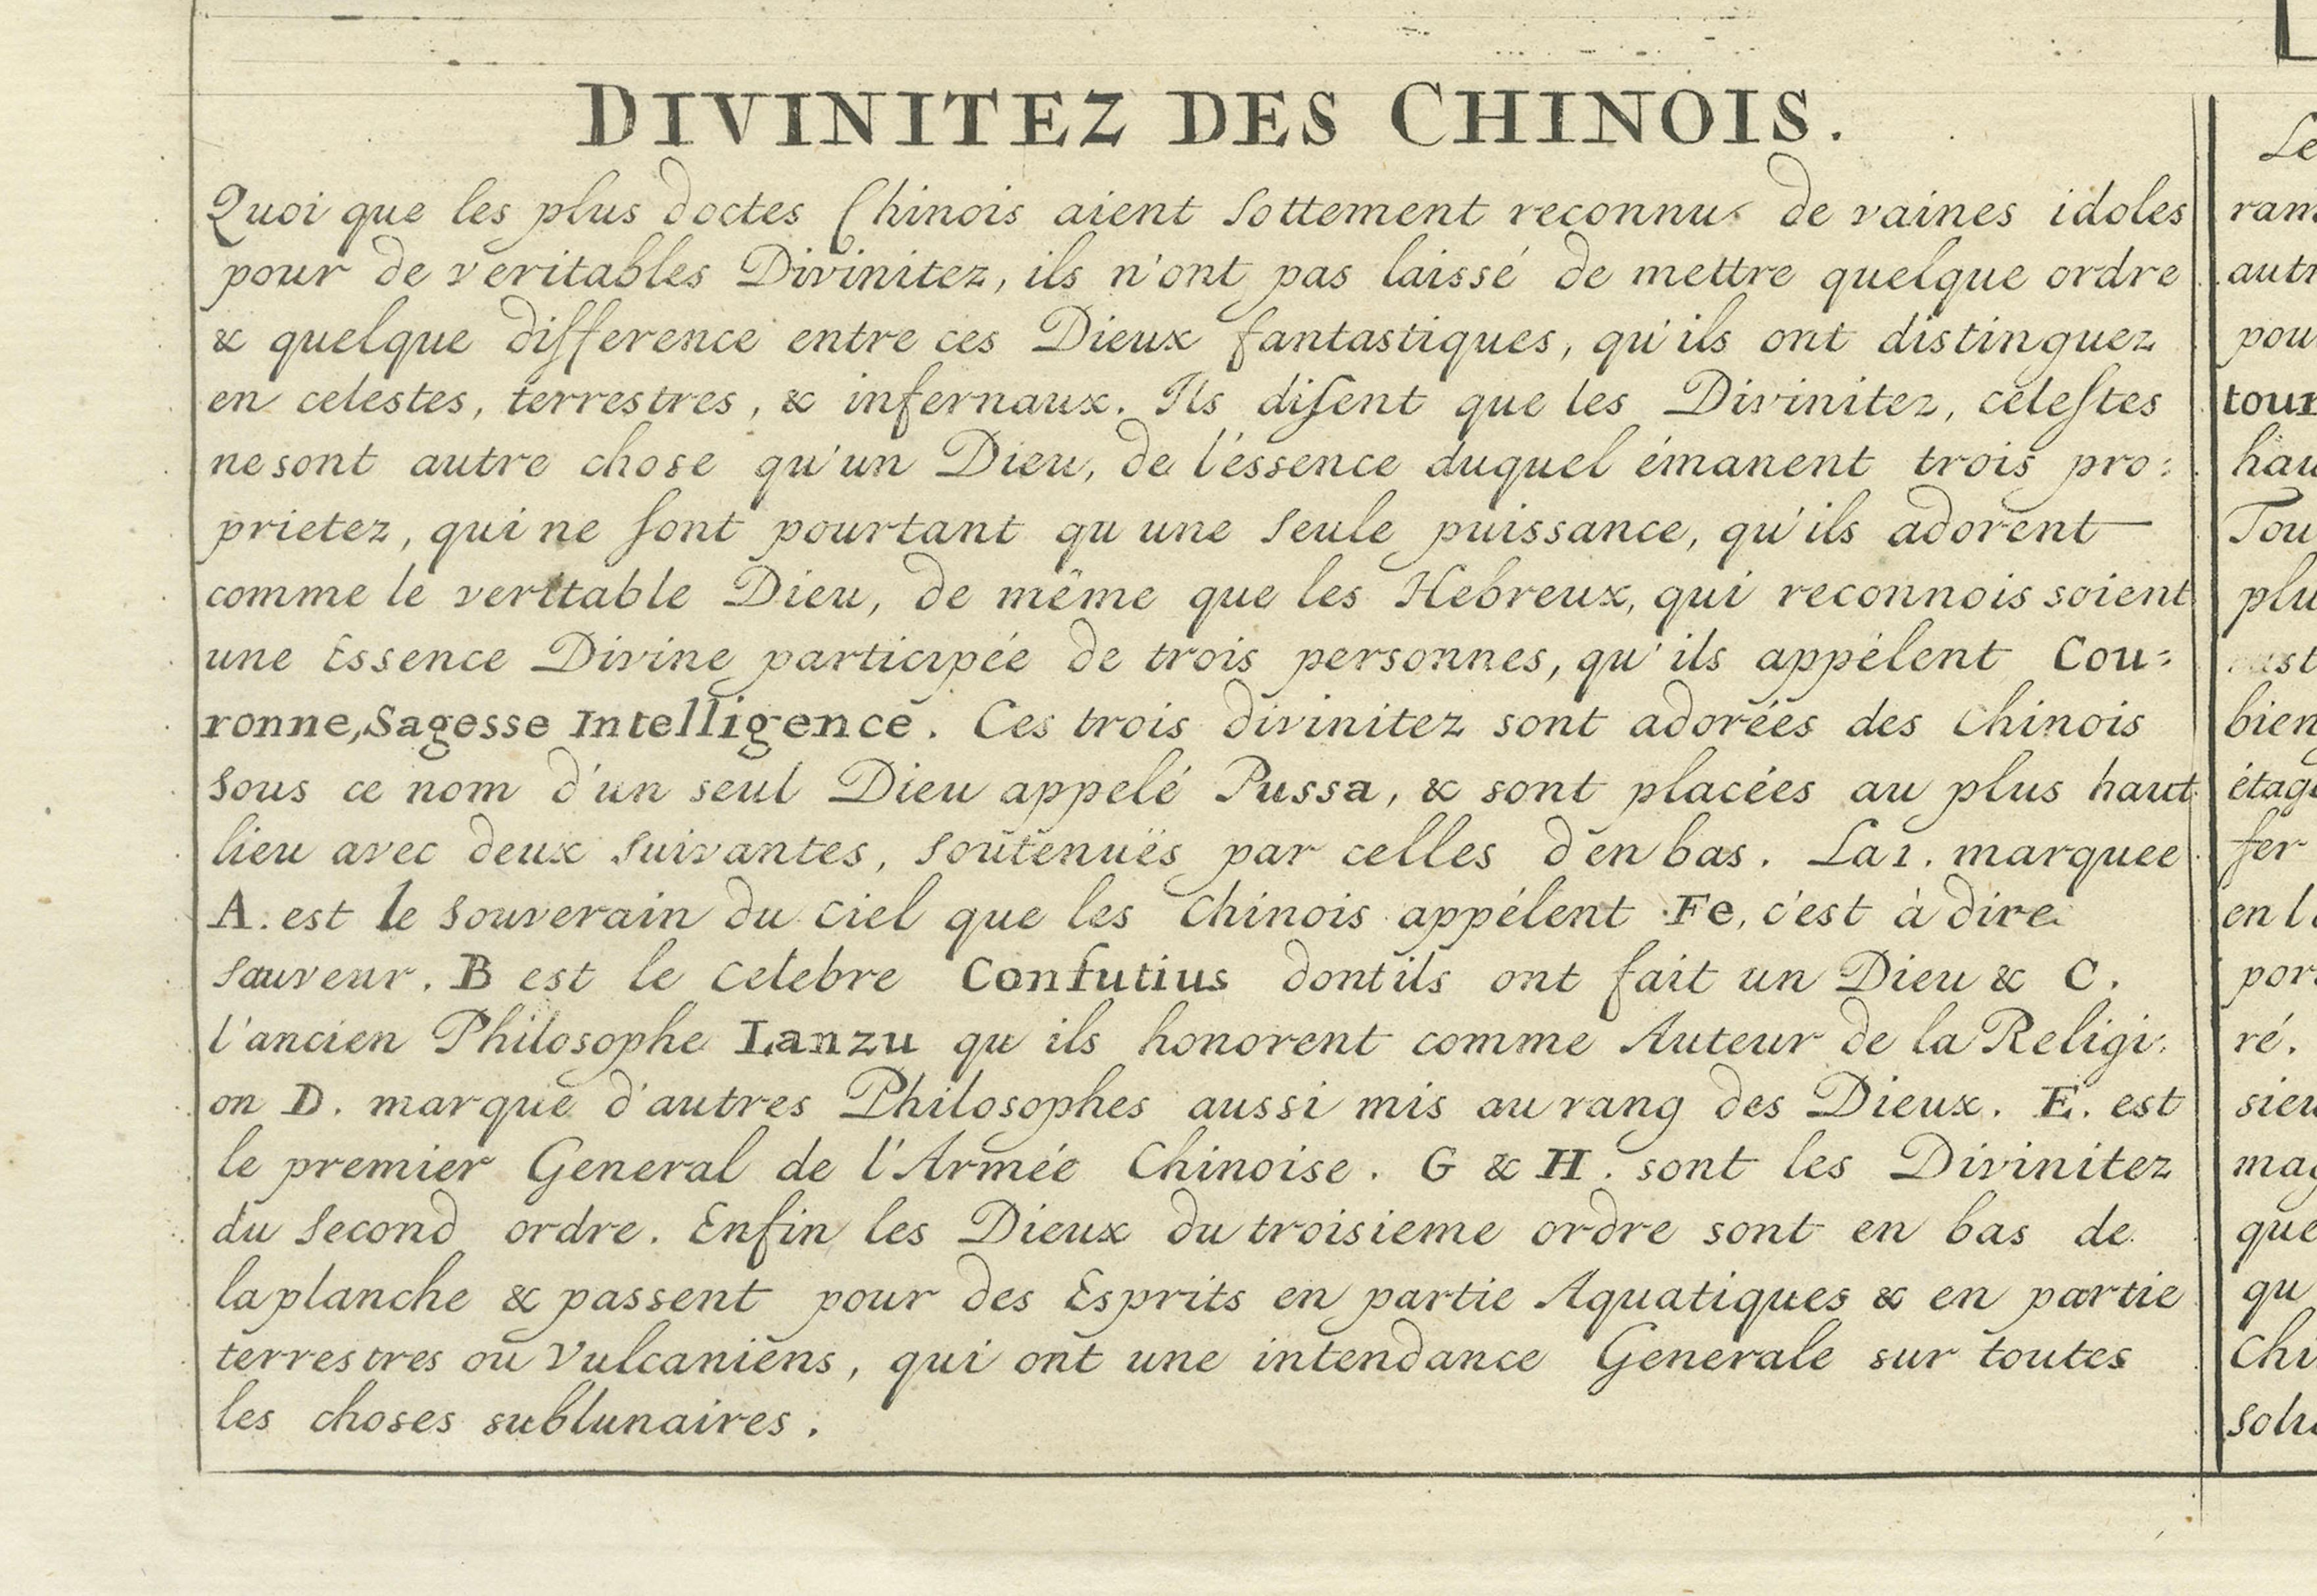 DIVINITEZ DES CHINOIS.
Quoi que les plus doctes Chinois aient sottement reconnus de vaines idoles
pour de veritables Divinitez, ils n'ont pas laissé de mettre quelque ordre
& quelque difference entre ces Dieux fantastiques, qu'ils ont distinguez
en celestes, terrestres, & infernaux. Ils disent que les Divinitez, celestes
ne sont autre chose qu'un Dieu, de l'éssence duquel émanent trois pro:
prietez, qui ne sont pourtant qu une seule puissance, qu'ils adorent
comme le veritable Dieu, de même que les Hebreux, qui reconnoissoient
une Essence Divine participée de trois personnes, qu'ils appélent Cou:
ronne, Sagesse Intelligence. Ces trois divinitez sont adorées des Chinois
sous ce nom d'un seul Dieu appelé Pussa, & sont placées au plus haut
lieu avec deux suivantes, soutenuës par celles d'en bas. La 1. marquee
A. est le souverain du Ciel que les Chinois appélent Fe, c'est à dire
sauveur. B est le celebre Confutius dont ils ont fait un Dieu & C.
l'ancien Philosophe Lanzu qu ils honorent comme Auteur de la Religi:
on D. marque d'autres Philosophes aussi mis au rang des Dieux. E. est
le premier General de l'Armée Chinoise. G & H. sont les Divinitez
du second ordre. Enfin les Dieux du troisieme ordre sont en bas de
la planche & passent pour des Esprits en partie Aquatiques & en partie
terrestres ou Vulcaniens, qui ont une intendance Generale sur toutes
les choses sublunaires.
Le
ram
autr
pou
tour
hau
Tou
plu
bien
étag
fer
en l
por
ré.
sieu
mag
que
qu
Chi
solu